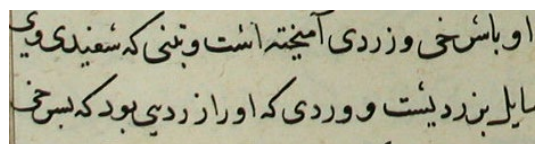 او باسرخی و زردی آمیخته است و تبنی که سفیدی وی
مایل بزردیست و وردی که او را زردیی بود که بسرخی